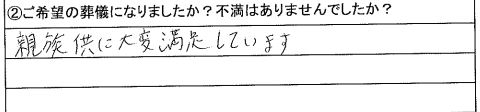 ②ご希望の葬儀になりましたか？不満はありませんでしたか？
親族供に大変満足しています